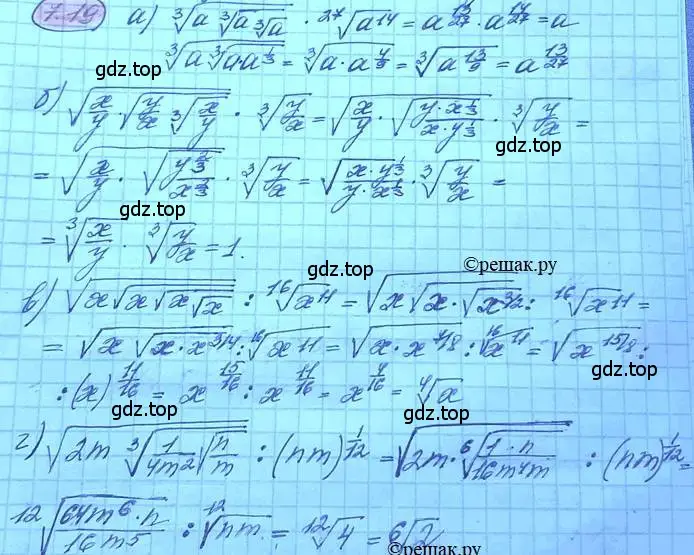 7.19) а) ∛(a ∛(a ∛a)) · ²⁷√(a¹⁴) = a^(13/27) · a^(14/27) = a
∛(a ∛(a·a^(1/3))) = ∛(a·a^(4/9)) = ∛(a^(13/9)) = a^(13/27)
gdz.top
gdz.top
б) √(x/y · √(y/x ∛(x/y))) · ∛(y/x) = √(x/y · √((y·x^(1/3))/(x·y^(1/3)))) · ∛(y/x) =
gdz.top
= √(x/y · √(y^(2/3)/x^(2/3))) · ∛(y/x) = √((x·y^(1/3))/(y·x^(1/3))) · ∛(y/x) =
gdz.top
= ∛(x/y) · ∛(y/x) = 1.
©решак.ру
gdz.top
в) √(x√(x√(x√x))) : ¹⁶√(x¹¹) = √(x√(x·√(x^(3/2)))) : ¹⁶√(x¹¹) =
= √(x √(x·x^(3/4))) : ¹⁶√(x¹¹) = √(x·x^(7/8)) : ¹⁶√(x¹¹) = √(x^(15/8)) :
: (x)^(11/16) = x^(15/16) : x^(11/16) = x^(4/16) = ⁴√x
gdz.top
gdz.top
г) √(2m ∛(1/(4m²) √(n/m))) : (nm)^(1/12) = √(2m · ⁶√((1·n)/(16m⁴m))) : (nm)^(1/12) =
gdz.top
¹²√((64m⁶·n)/(16m⁵)) : ¹²√(nm) = ¹²√4 = ⁶√2
©решак.ру